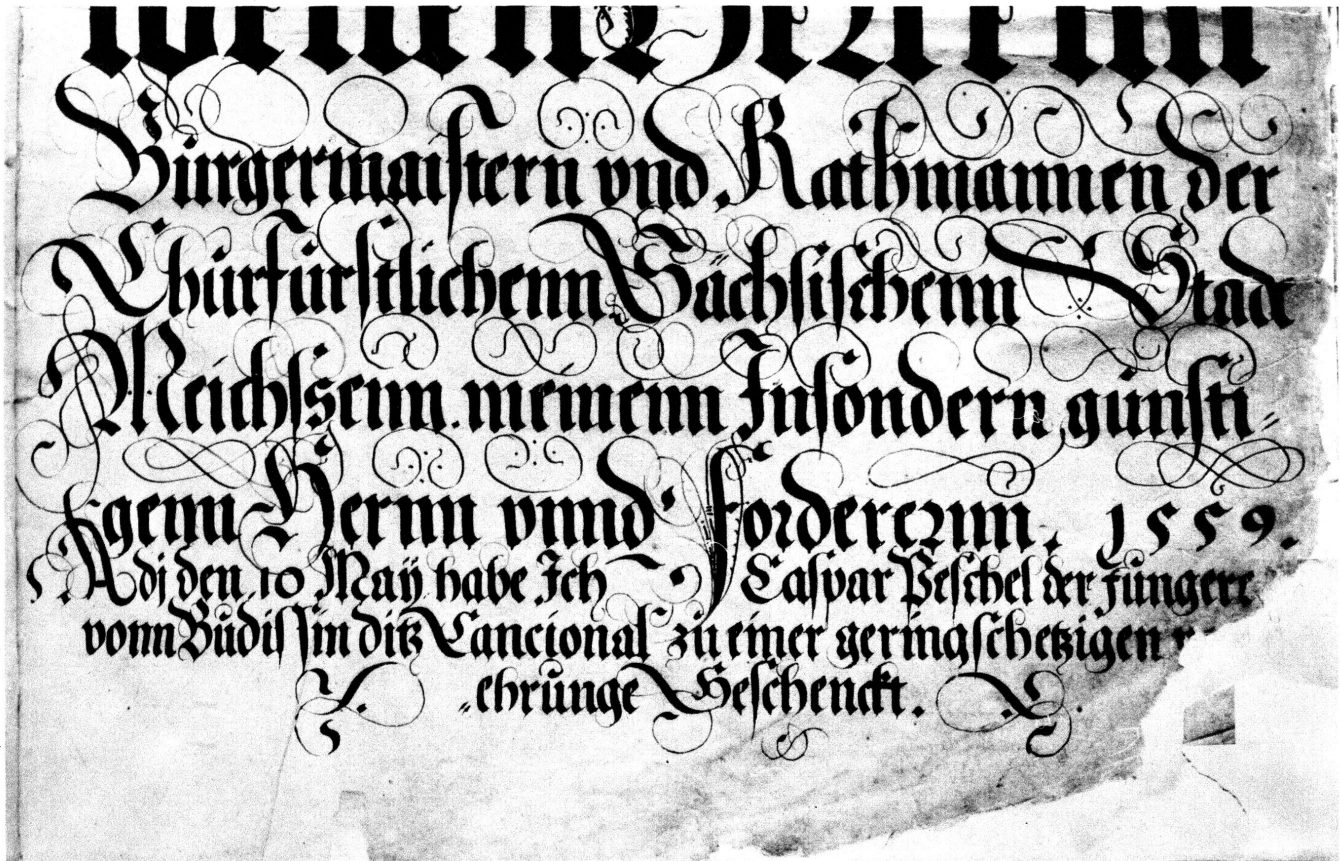 Bürgermaistern vnd Rathmannen der
Churfürstlichenn Sächsischenn Stadt
Meichssenn meinenn Insondern günsti-
genn Hernn vnnd fordererznn. 1559.
Adj den 10 Maÿ habe Ich Caspar Peschel der Jüngere
vonn Budissin ditz Cancional zu einer geringschetzigen
ehrunge Geschenckt.